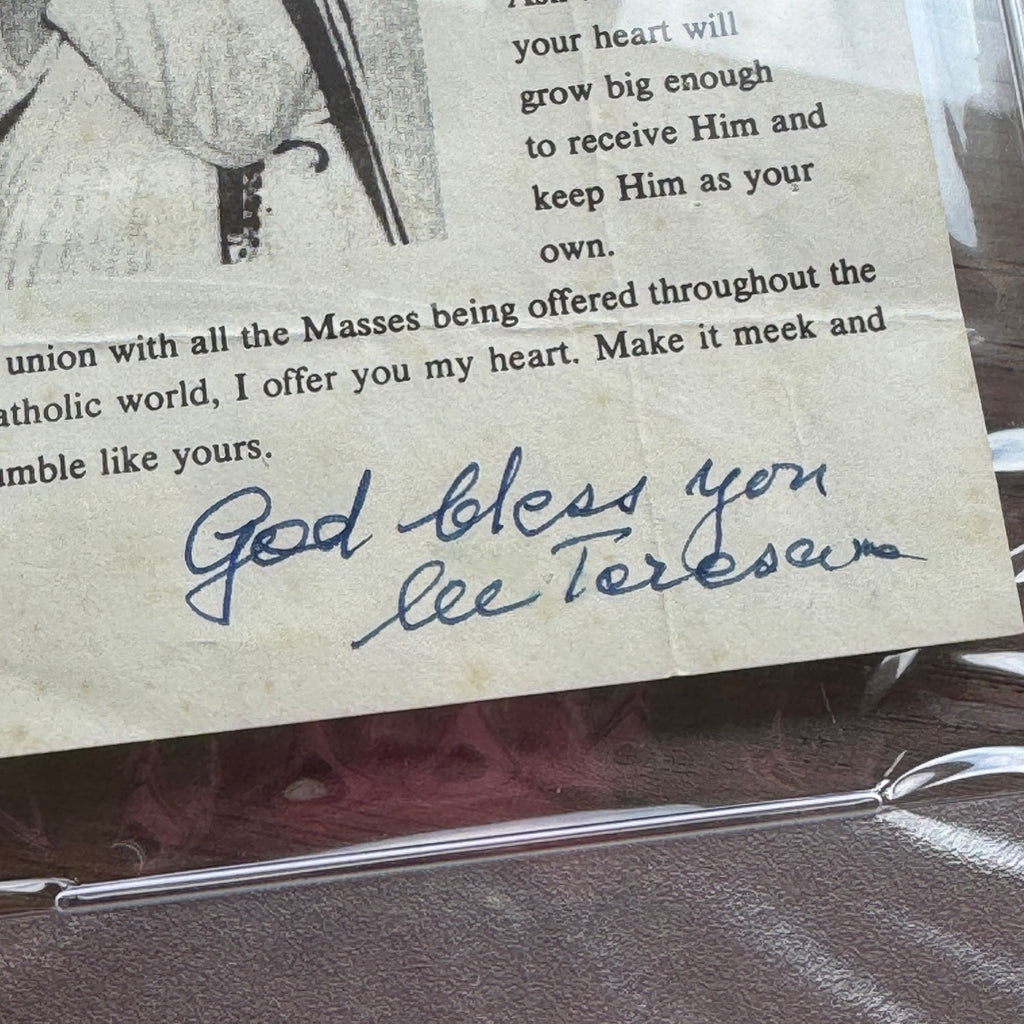 your heart will
grow big enough
to receive Him and
keep Him as your
own.
union with all the Masses being offered throughout the
atholic world, I offer you my heart. Make it meek and
umble like yours.
God bless you
lee Teresa mc